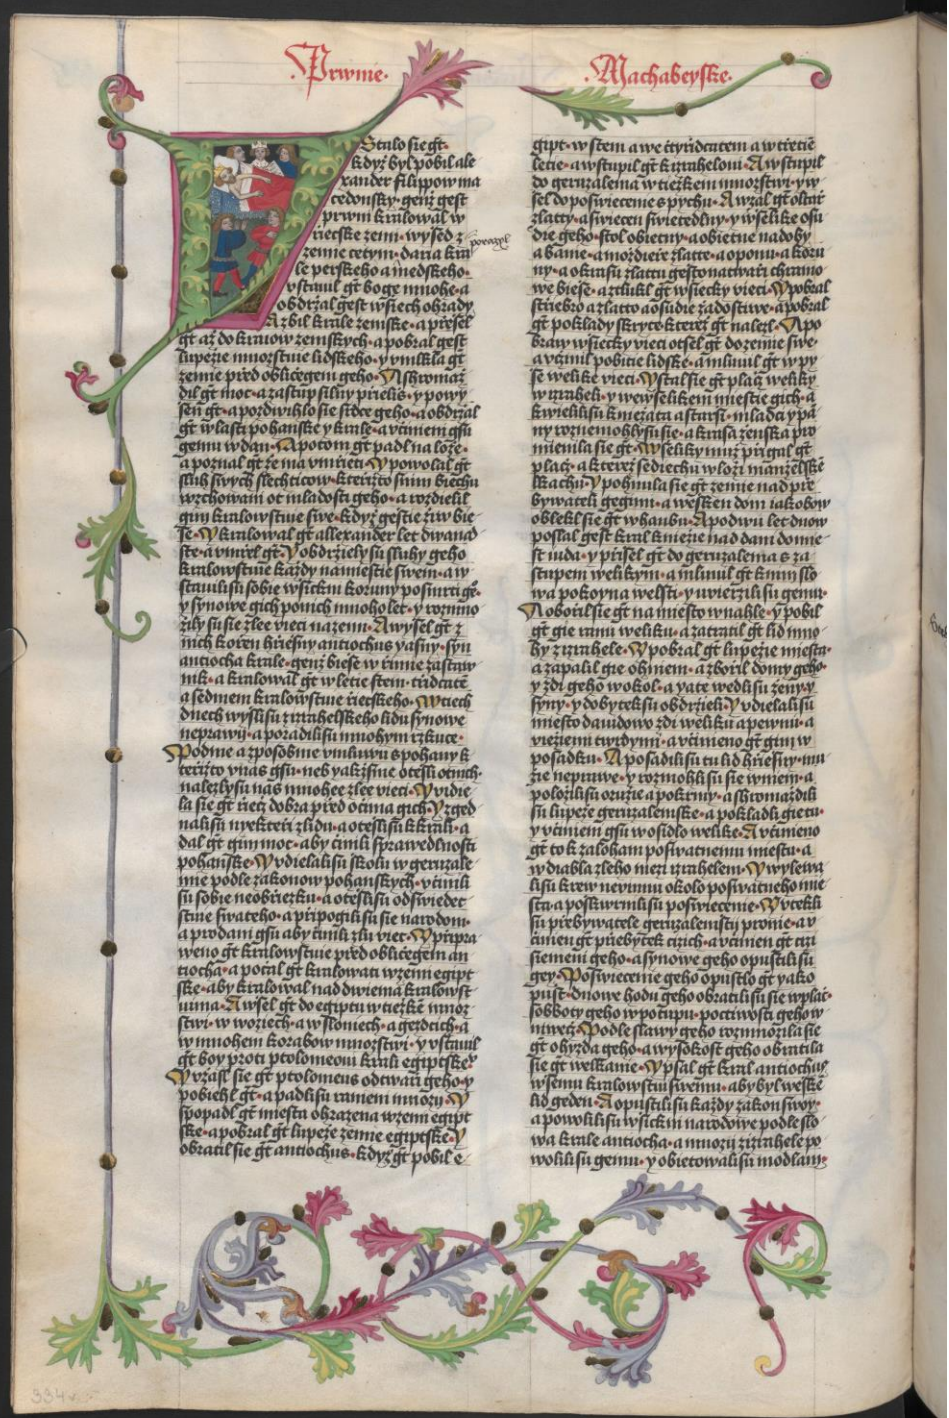 Prwnie·
Machabeyske·
Stalo sie gt·
kdyz byl pobil ale
xander filippow ma
cedonsky· genz gest
prwni kralowal w
rzecske zemi· wysed z
zemie cetym· daria kra
le perskeho a medskeho·
vstawil gt boge mnohe· a
obdrzal gest wsiech ohrady
A zbil krale zemske· a prsiesel
gt az do kraiow zemskych· a pobral gest
lupezie mnozstwie lidskeho· y vmlkla gt
zemie prsied obliczegem geho· A shromaz
dil gt moc· a zastup silny prsielis· y powy
sen gt· a pozdwihlo sie srdce geho· a obdrzal
gt wlasti pohanske y krale· a vczineni gsu
gemu w dan· A potom gt padl na loze·
a poznal gt ze ma vmrzieti· Y powolal gt
sluh swych slechticow· kterzizto s nim biechu
wzchowani ot mladosti geho· a rozdielil
gim kralowstwie swe· kdyz gestie ziw bie
se· Y kralowal gt allexander let dwana
ste· a vmrzel gt· Y obdrziely su sluhy geho
kralowstwie kazdy na miestie swem· a w
stawili su sobie wsickni koruny po smrti ge°
y synowe gich po nich mnoho let· y rozmno
zily su sie zlee wieci na zemi· A wysel gt z
nich korzen hrziesny antiochus yasny· syn
antiocha krale· genz biese w rzimie zastaw
nik· a kralowal gt w letie stem· trzidcatem
a sedmem kralowstwie rzecskeho· W tiech
dnech wysli su z izrahelskeho lidu synowe
neprawij· a poradili su mnohym rzkuce·
Podme a zposobme vmluwu s pohany k
terzizto vnas gsu· neb yakz sme otesli ot nich·
nalezly su nas mnohee zlee wieci· Y vidie
la sie gt rziecz dobra prsied oczima gich· Y zged
nali su nyekterzi z lidu· a otesli su k krali· a
dal gt gim moc· aby czinili sprawedlnosti
pohanske· Y vdielali su skolu w geruzale
mie podle zakonow pohanskych· vczinili
su sobie neobrziezku· a otesli su od swiedec
stwie swateho· a prsipogili su sie narodom·
a prodani gsu aby czinili zlu wiec· Y prsipra
weno gt kralowstwie prsied obliczegem an
tiocha· a poczal gt kralowati w zemi egipt
ske· aby kralowal nad dwiema kralowst
wima· A wsel gt do egiptu w tiezkem mnoz
stwi· w woziech· a w sloniech· a gezdcich· a
w mnohem korabow mnozstwi· y vstawil
gt boy proti ptolomeowi krali egiptskem
Y vzasl sie gt ptolomeus od twarzi geho· y
pobiehl gt· a padli su ranieni mnozy· Y
spopadl gt miesta ohrazena w zemi egipt
ske· a pobral gt lupeze zemie egiptske· Y
obratil sie gt antiochus· kdyz gt pobil e·
gipt· w stem a we cztyrzidcatem a w trzetie
letie· a wstupil gt k izrahelowi· A wstupil
do geruzalema w tiezkem mnozstwi· y w
sel do poswiecenie s pychu· A wzal gt oltarz
zlatty· a swiecen swietedlny· y wselike osu
die geho· stol obietny· a obietne nadoby
a banie· a mozdierze zlatte· a oponu· a koru
ny· a okrasu zlattu gesto na twarzi chramo
we biese· a ztlukl gt wsiecky wieci· Y pobral
strziebro a zlatto a osudie zadostiwe· a pobral
gt poklady skryte· kterez gt nalezl· A po
braw wsiecky wieci otsel gt do zemie swe·
a vczinil pobitie lidske· a mluwil gt w py
se welike wieci· Y stal sie gt placz weliky
w izraheli· y we wselikem miestie gich· a
kwielili su kniezata a starsi· mladci y pa
ny roznemohly su sie· a krasa zenska pro
mienila sie gt· Wseliky muz prsigal gt
placz· a kterez sediechu w lozi manzelske
lkachu· Y pohnula sie gt zemie nad prsie
bywateli gegimi· a wesken dom iakobow
oblekl sie gt w hanbu· A po dwu let dnow
poslal gest kral knieze nad dani do mie
st iuda· y prsisel gt do geruzalema s za
stupem welikym· a mluwil gt k nim slo
wa pokoyna w lsti· y vwierzili su gemu·
A oborzil sie gt na miesto w nahle· y pobil
gt gie ranu weliku· a zatratil gt lid mno
hy z izrahele· Y pobral gt lupezie miesta·
a zapalil gie ohniem· a zborzil domy geho·
y zdi geho wokol· a yate wedli su zeny· y
syny· y dobytek su obdrzieli· Y vdielali su
miesto dawidowo zdi weliku a pewnu· a
wiezemi twrdymi· a vczineno gt gim w
posadku· A posadili su tu lid hrziesny· mu
zie neprawe· y rozmohli su sie w niem· a
polozili su oruzie a pokrmy· a shromazdili
su lupeze geruzalemske· a pokladli gie tu·
y vczineni gsu w osidlo welike· A vczineno
gt to k zaloham poswatnemu miestu· a
w diabla zleho w izrahelem· Y wylewa
li su krew newinnu okolo poswatneho mie
sta· a poskwrnili su poswiecenie· Y vtekli
su prsiebywatele geruzalemstij pro nie· a v
czinen gt prsiebytek cizich· a vczinen gt cizi
siemeni geho· a synowe geho opustili su
gey· Poswiecenie geho opustlo gt yako
pust· dnowe hodu geho obratili su sie w placz·
sobboty geho w potupu· poctiwosti geho w
niwecz· Podle slawy geho rozmnozila sie
gt ohyzda geho· a wysokost geho obratila
sie gt w elkanie· Y psal gt kral antiochus
wsemu kralowstwi swemu· aby byl weske
lid geden· A opustili su kazdy zakon swoy·
a powolili su wsickni narodowe podle slo
wa krale antiocha· a mnozij z izrahele po
wolili su gemu· y obietowali su modlam·
334v